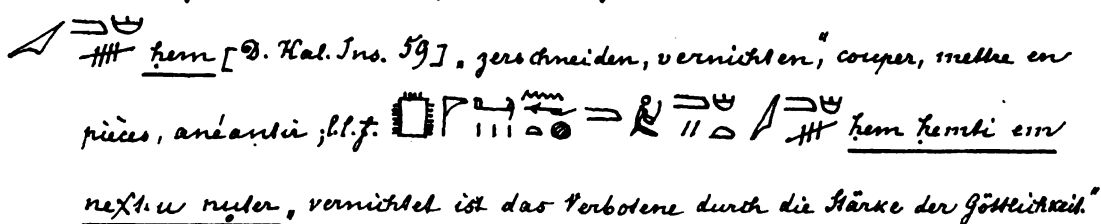 ḥem [D. Kal. Ins. 59] „zerschneiden, vernichten,“ couper, mettre en
pièces, anéantir; l.l.f. ḥem ḥemti em
neχt.u nuter „vernichtet ist das Verbotene durch die Stärke der Göttlichkeit.“